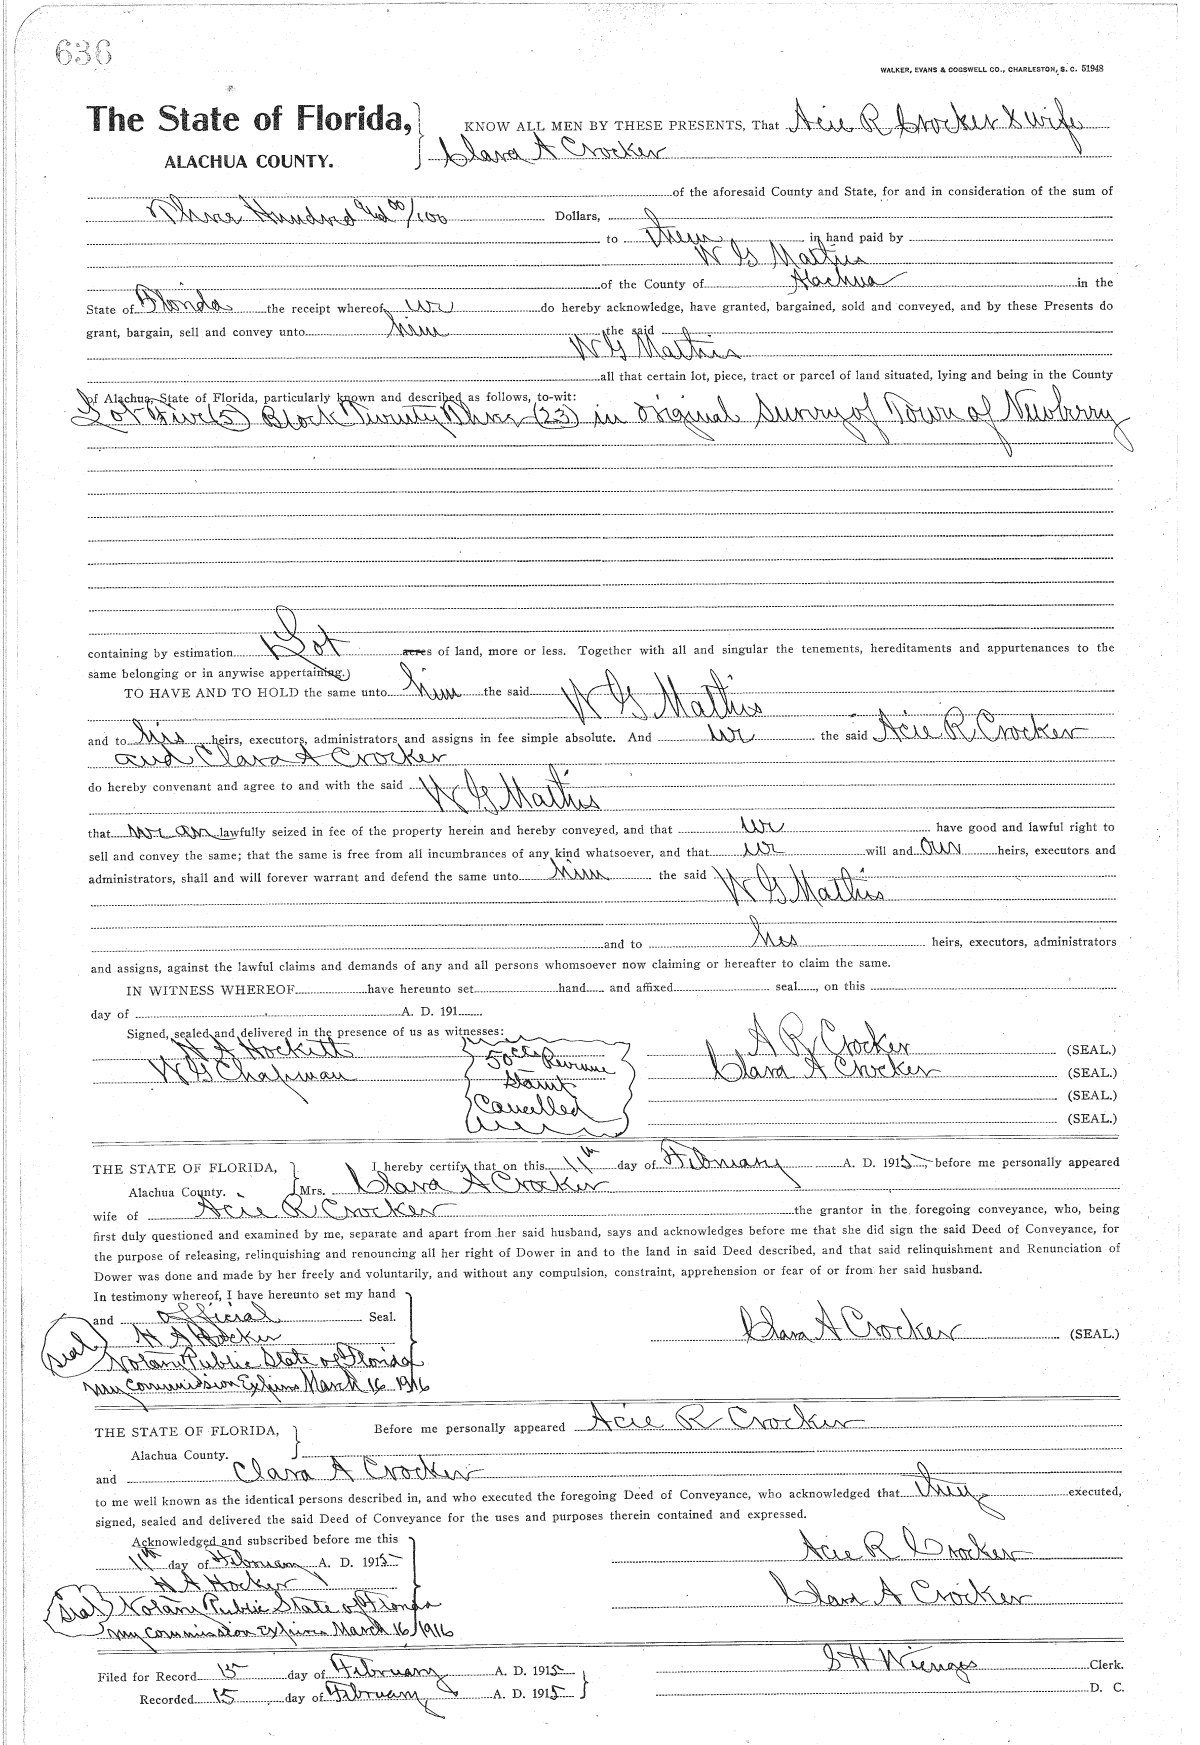 636
WALKER, EVANS & COGSWELL CO., CHARLESTON, S. C. 51948
The State of Florida,
ALACHUA COUNTY.
KNOW ALL MEN BY THESE PRESENTS, That Acie R Crocker & wife
Clara A Crocker
of the aforesaid County and State, for and in consideration of the sum of
Three Hundred and 00/100 Dollars,
to them in hand paid by
W G Mathis
of the County of Alachua in the
State of Florida the receipt whereof we do hereby acknowledge, have granted, bargained, sold and conveyed, and by these Presents do
grant, bargain, sell and convey unto him the said
W G Mathis
all that certain lot, piece, tract or parcel of land situated, lying and being in the County
of Alachua, State of Florida, particularly known and described as follows, to-wit:
Lot Five (5) Block Twenty Three (23) in original Survey of Town of Newberry
containing by estimation Lot acres of land, more or less. Together with all and singular the tenements, hereditaments and appurtenances to the
same belonging or in anywise appertaining.)
TO HAVE AND TO HOLD the same unto him the said W G Mathis
and to his heirs, executors, administrators and assigns in fee simple absolute. And we the said Acie R Crocker
and Clara A Crocker
do hereby convenant and agree to and with the said W G Mathis
that we are lawfully seized in fee of the property herein and hereby conveyed, and that we have good and lawful right to
sell and convey the same; that the same is free from all incumbrances of any kind whatsoever, and that we will and our heirs, executors and
administrators, shall and will forever warrant and defend the same unto him the said W G Mathis
and to his heirs, executors, administrators
and assigns, against the lawful claims and demands of any and all persons whomsoever now claiming or hereafter to claim the same.
IN WITNESS WHEREOF have hereunto set hand and affixed seal, on this
day of A. D. 191
Signed, sealed and delivered in the presence of us as witnesses:
H A Hockett
W G Chapman
50cts Revenue
Stamp
Cancelled
A R Crocker (SEAL.)
Clara A Crocker (SEAL.)
(SEAL.)
(SEAL.)
THE STATE OF FLORIDA,
Alachua County.
I hereby certify that on this 11th day of February A. D. 1915, before me personally appeared
Mrs. Clara A Crocker
wife of Acie R Crocker the grantor in the foregoing conveyance, who, being
first duly questioned and examined by me, separate and apart from her said husband, says and acknowledges before me that she did sign the said Deed of Conveyance, for
the purpose of releasing, relinquishing and renouncing all her right of Dower in and to the land in said Deed described, and that said relinquishment and Renunciation of
Dower was done and made by her freely and voluntarily, and without any compulsion, constraint, apprehension or fear of or from her said husband.
In testimony whereof, I have hereunto set my hand
and official Seal.
H A Hocker
Seal
Notary Public State of Florida
my commission Expires March 16 1916
Clara A Crocker (SEAL.)
THE STATE OF FLORIDA,
Alachua County.
Before me personally appeared Acie R Crocker
and Clara A Crocker
to me well known as the identical persons described in, and who executed the foregoing Deed of Conveyance, who acknowledged that they executed,
signed, sealed and delivered the said Deed of Conveyance for the uses and purposes therein contained and expressed.
Acknowledged and subscribed before me this
11th day of February A. D. 1915
H A Hocker
Seal Notary Public State of Florida
my commission Expires March 16/1916
Acie R Crocker
Clara A Crocker
Filed for Record 15 day of February A. D. 1915
Recorded 15 day of February A. D. 1915
S H Wienges Clerk.
D. C.